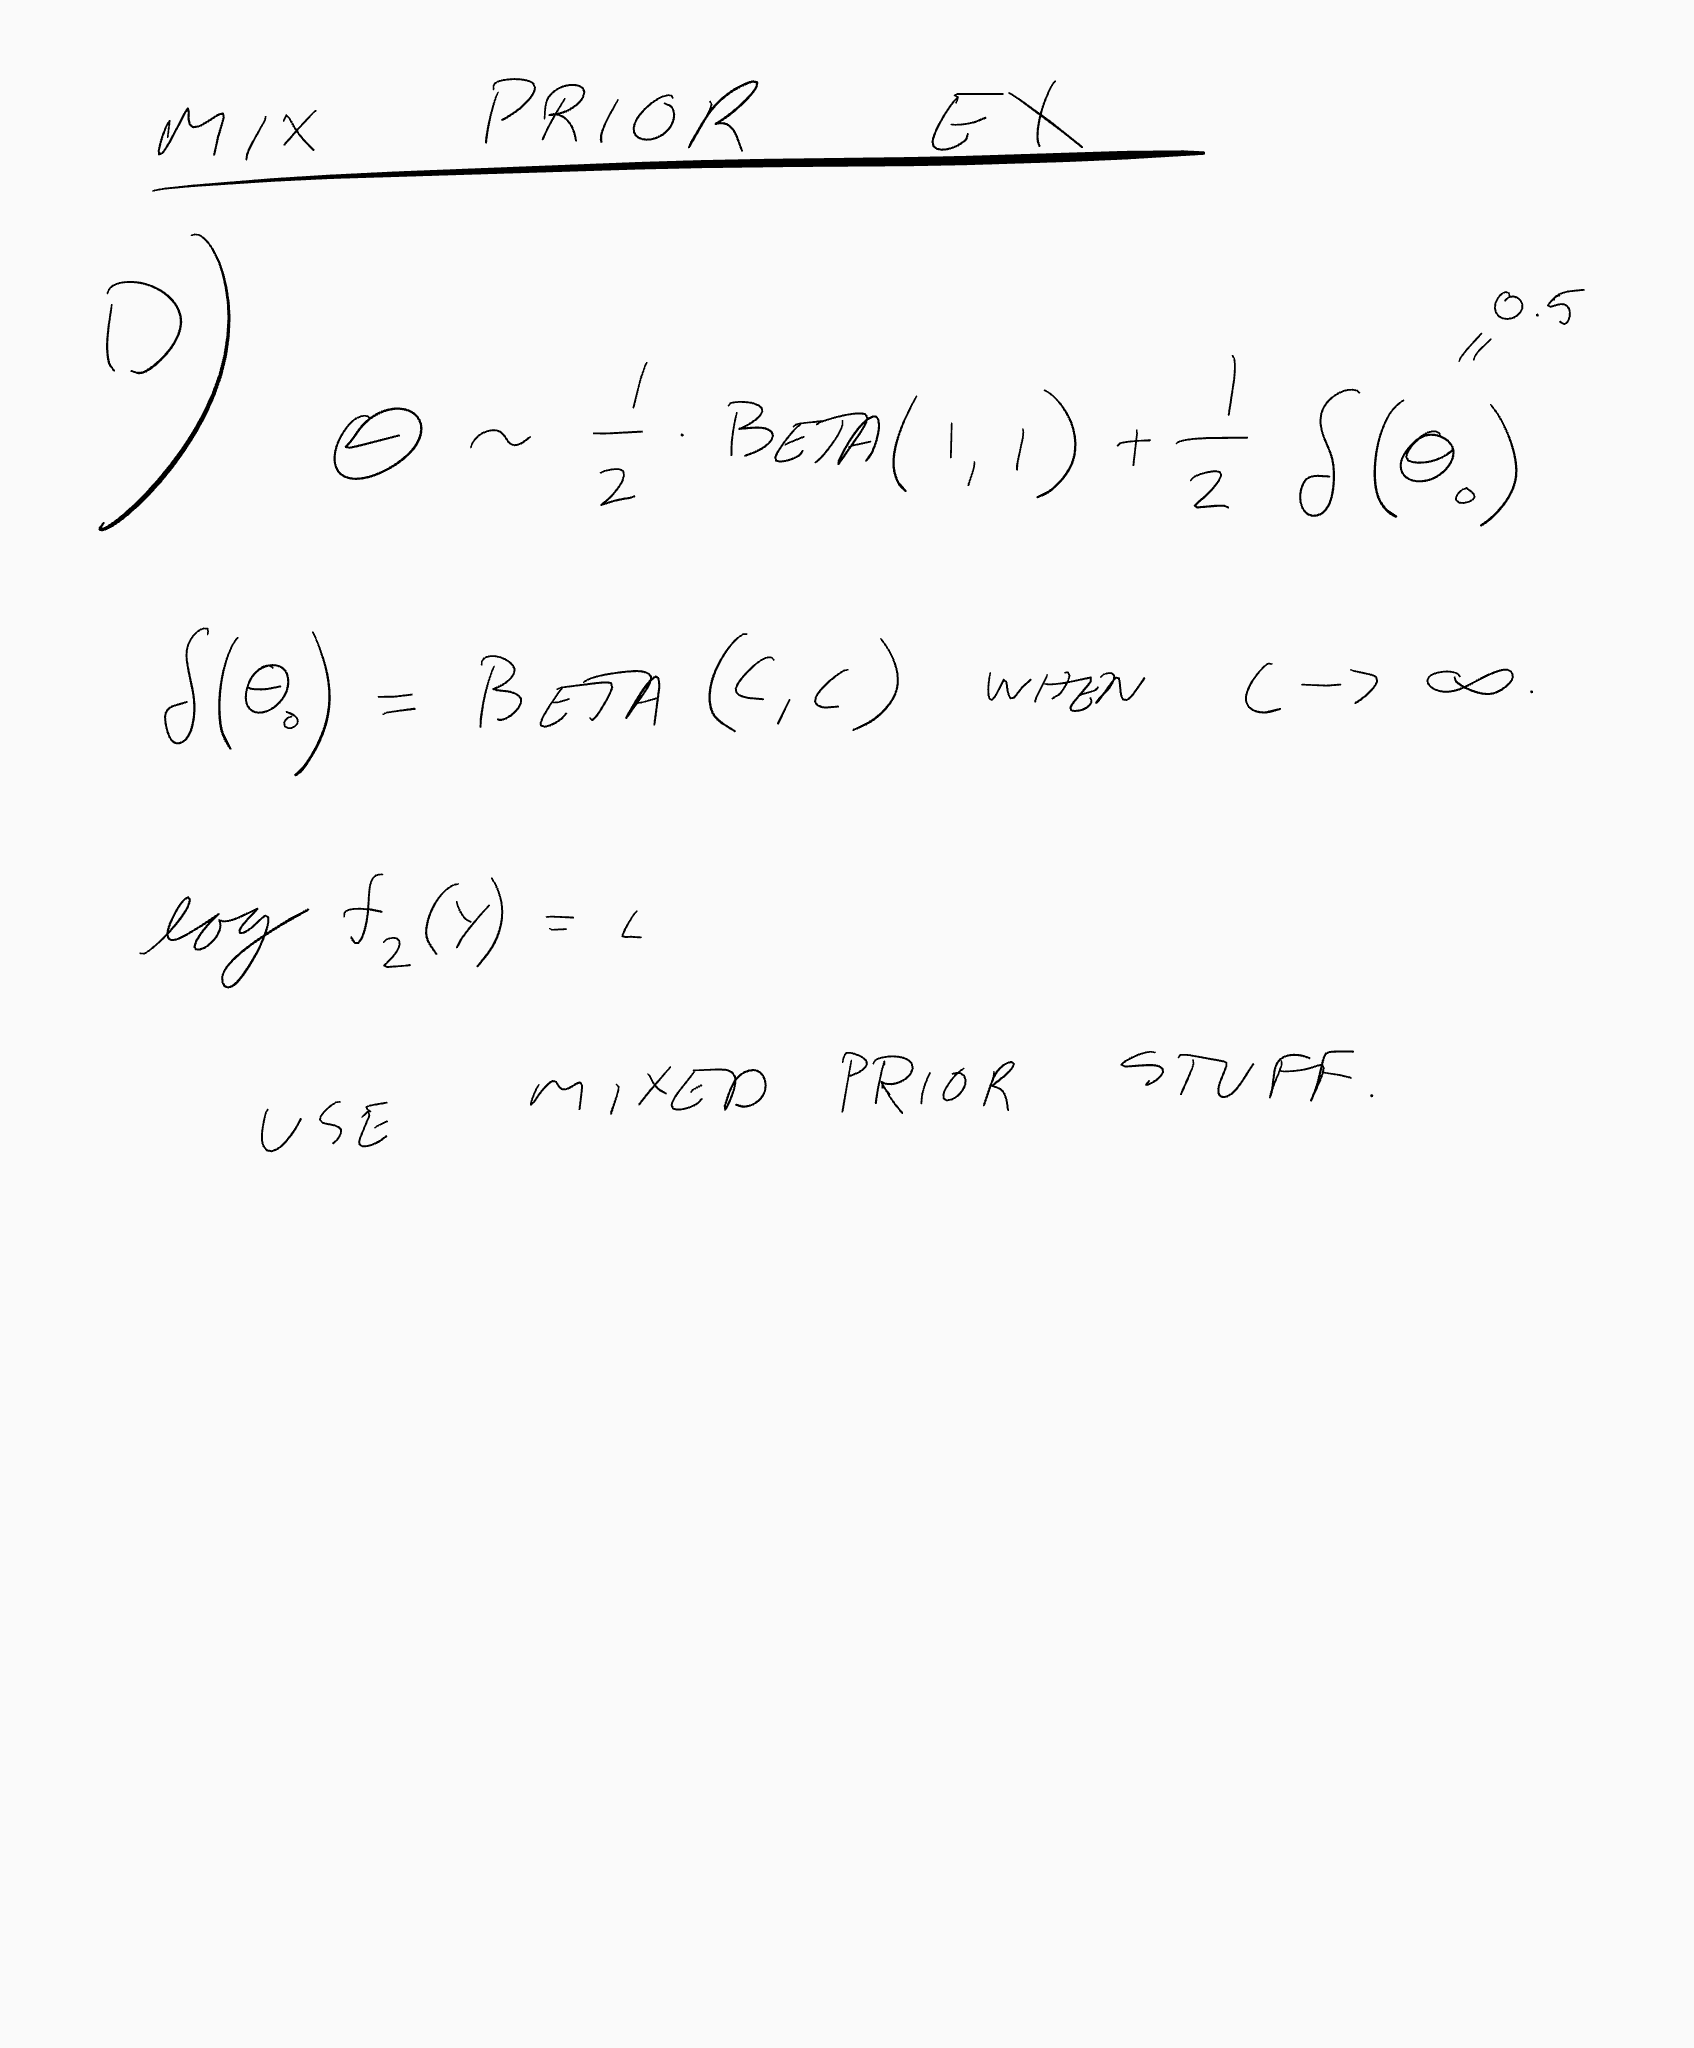 MIX PRIOR EX
D)
0.5
=
θ ~ 1/2 · BETA(1,1) + 1/2 δ(θ₀)
δ(θ₀) = BETA (C,C) WHEN C -> ∞.
log f₂(y) = L
USE MIXED PRIOR STUFF.